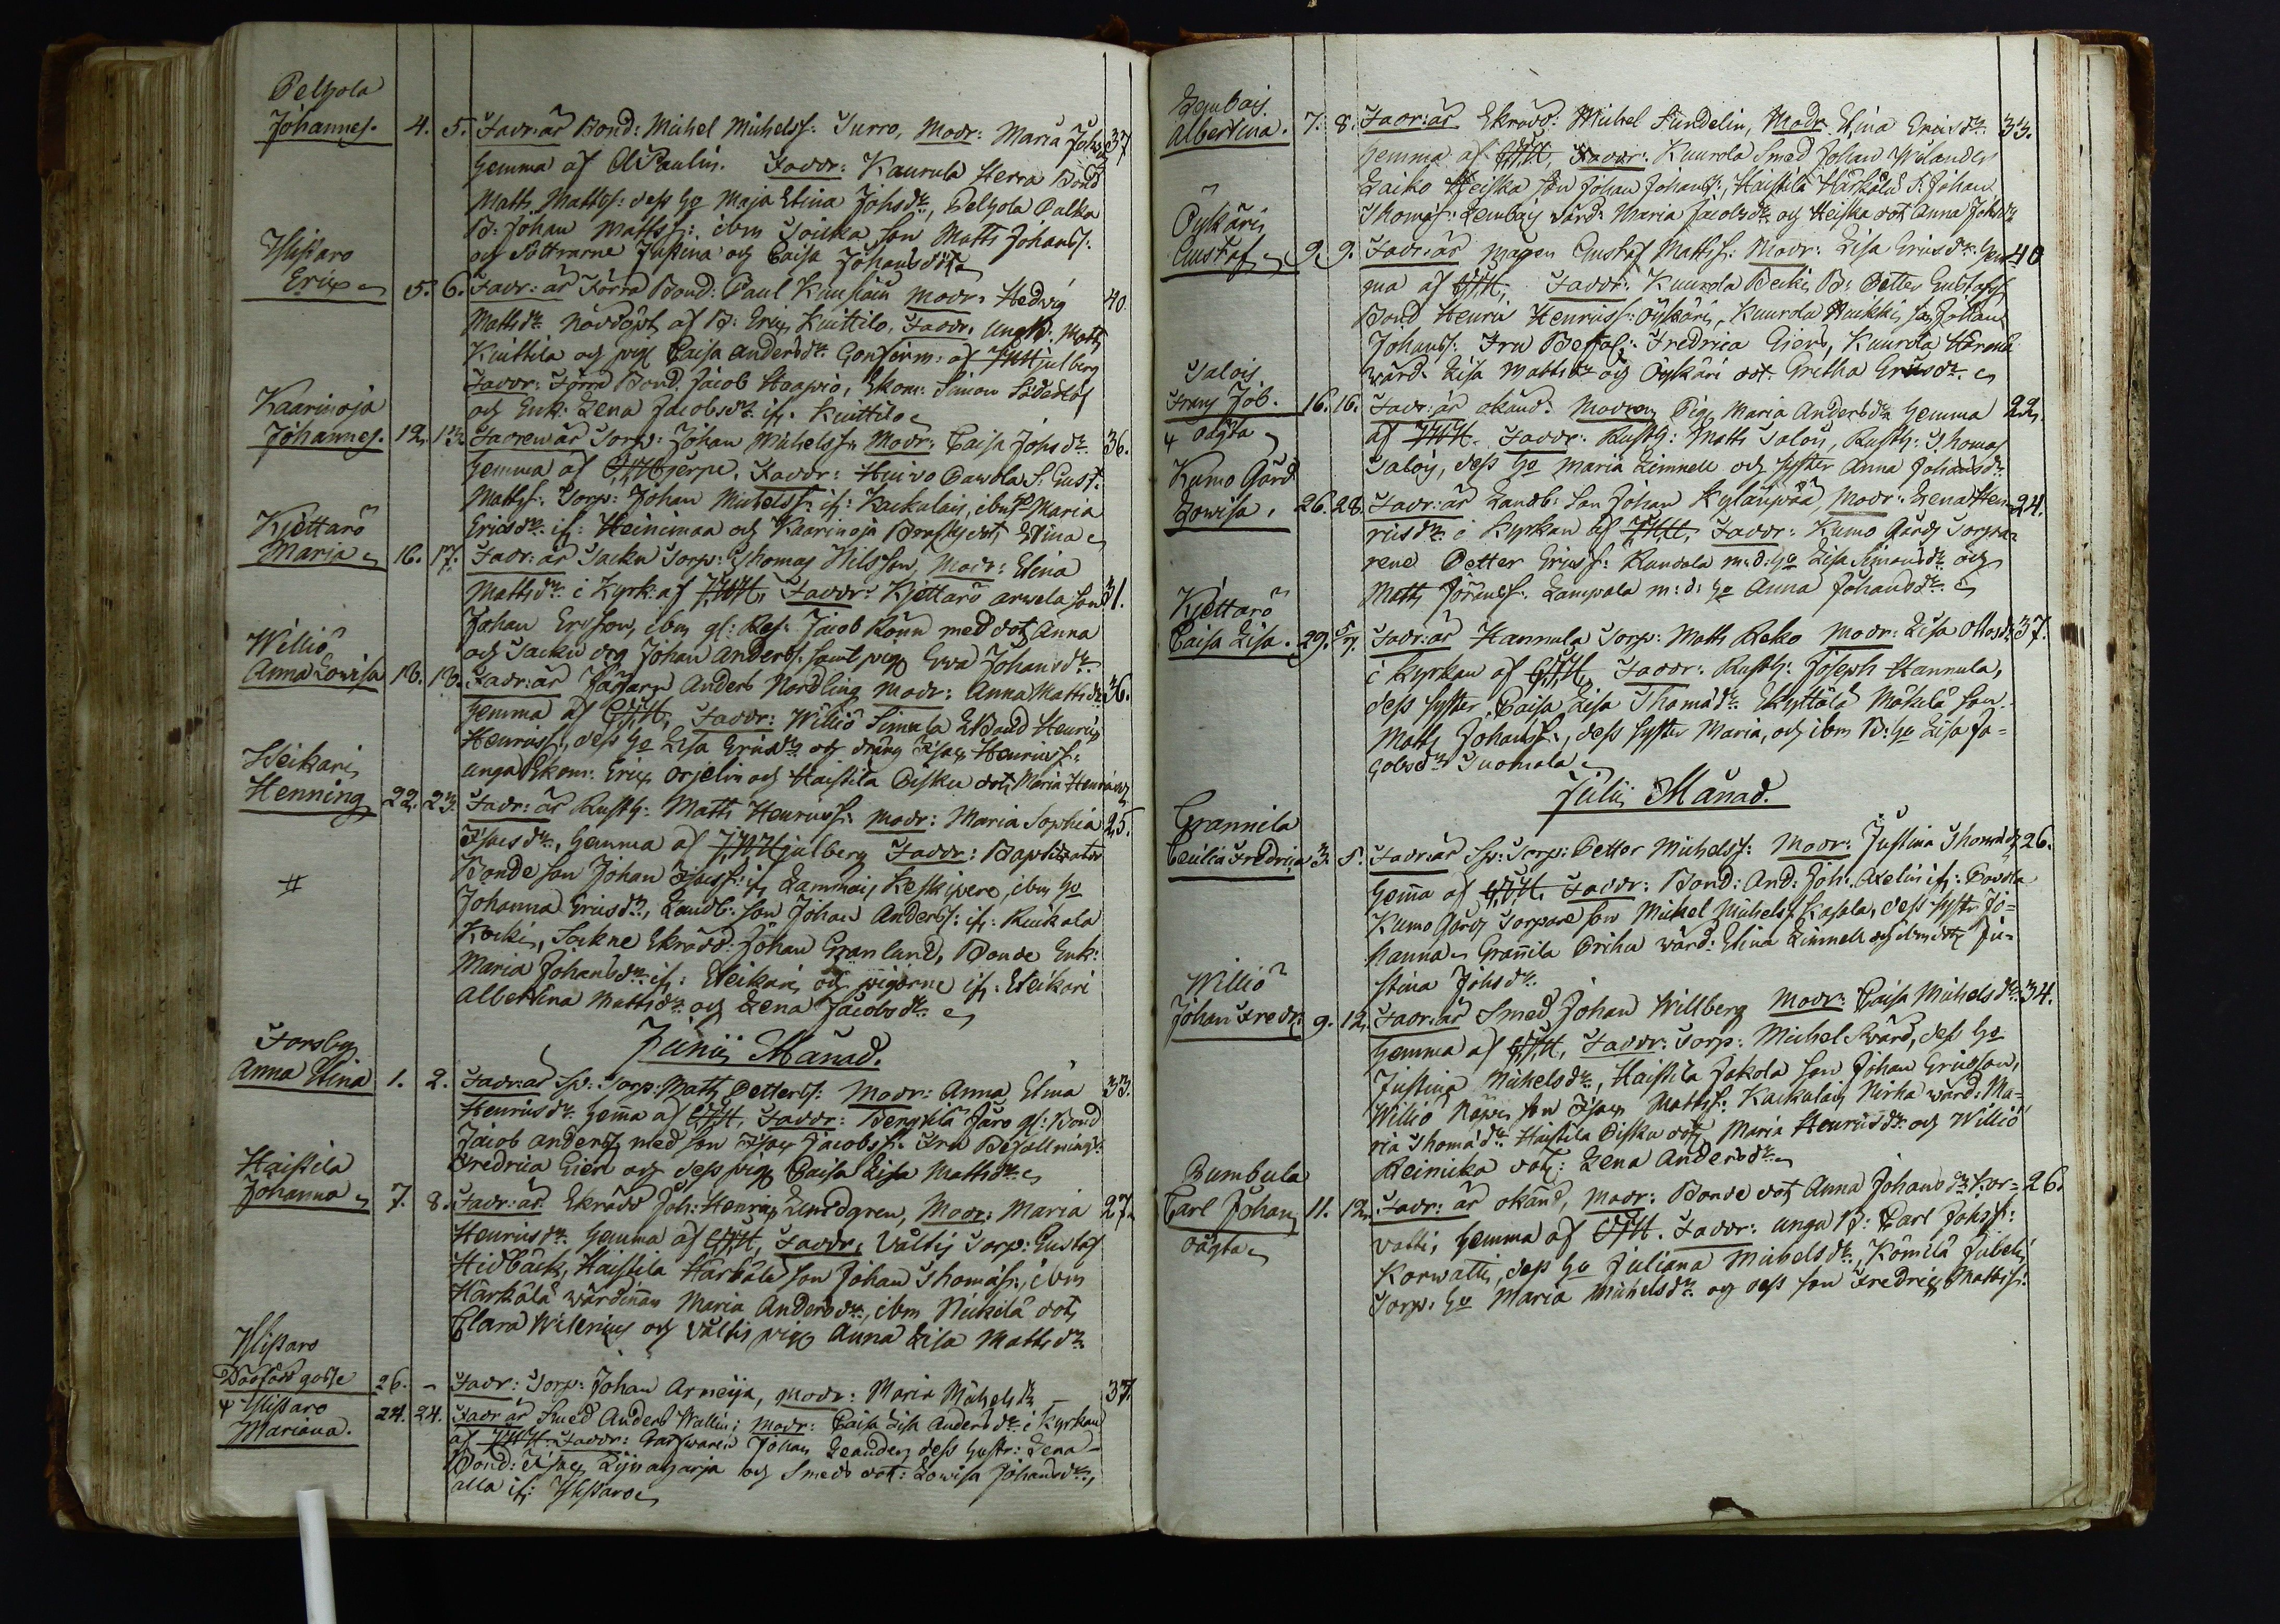 Pelhola
Johannes. 4. 5. Fadr: är Bond: Michel Michelss: Turro, Modr: Maria Johsdr 37
hemma af APaulin. Faddr: Kaurula Herra Bond
Matts Mattss: dess ho Maja Stina Johsdr, Pelhola Palka
B: Johan Mattss: ibm Toicka son Matts Johanss:
och Dottrarne Justina och Caisa Johansdött.
Ylistaro
Eric 5. 6. Fadr: är Förra Bond: Paul Knuslain Modr: Hedvig 40.
Mattsdr. nöddöpt af B: Eric Kuittilo, Faddr. ungk: Matts
Kuittila och pig Caisa Andersdr. Confirm: af JWHjulberg
Faddr: Förra Bond. Jacob Haapio, Ekon: Simon Söderlöf
och Enk: Lena Jacobsdr. if. Kuittilo
Kaarinoja
Johannes. 12. 13. Fadren är Torp: Johan Michelss: Modr: Caisa Johsdr. 36.
hemma af Hjerpe. Faddr: Huivo Pawola S. Gust.
Mattss: Torp: Johan Michelss: if: Kackulais, ibm ho Maria
Ericsdr. if: Heinimaa och Kaarinoja dott. Stina
Kjettarö
Maria 16. 17. Fadr: är Sacku Torp: Thomas Nilsson, Modr: Stina
Mattsdr. i Kyrk: af JWH, Faddr: Kjettarö Arwela son 31.
Johan Ersson, ibm gl: Res: Jacob Rönn med dott Anna
och Sacku drg Johan Anderss. samt pig Ewa Johansdr.
Williö
Anna Lowisa 18. 18. Fadr: är Anders Nordling Modr: Anna Mattsdr. 36.
hemma af JWH, Faddr: Williö Simula Bond Henric
Henricss:, dess ho Lisa Ericsdr och dräng Isac Henricss:
unga Ekon: Eric Orjelin och Haistila Pisku dott. Maria Henricsdr
Weikari
Henning 22. 23. Fadr: är Rusth: Matts Henricss: Modr: Maria Sophia 25.
Isacsdr., hemma af JWHjulberg Faddr: Baptizator
# Bonde son Johan Isacss: if Lammais, Keskipere, ibm ho
Johanna Ericsdr., Landb: son Johan Anderss: if: Ruckola
Kocki, Sockne skrädd: Johan Granlund, Bonde Enk:
Maria Johansdr. if: Weikari och pigorne if: Weikari
Albertina Mattsdr och Lena Jacobsdr.
Junii Månad.
Forsby
Anna Stina 1. 2. Fadr: är Sp: Torp: Matts Petterss: Modr: Anna Stina 33.
Henricsdr. hemma af JWH, Faddr: Bengtilä Jaro gl: Bond
Jacob Anderss med son Isac Jacobss: Fru Befallnings:
Fredrica Giers och dess pig Caisa Lisa Mattsdr.
Haistila
Johanna 7. 8. Fadr: är Skrädd Joh: Henric Lundgren, Modr: Maria 27.
Henricsdr. hemma af JWH, Faddr: Valtis Torp: Gustaf
Hidbäck, Haistila Härkälä son Johan Thomass:, ibm
Härkälä wärdinnan Maria Andersdr., ibm Nickilä dott
Clara Wilenius och Valtis pig Anna Lisa Mattsdr.
Ylistaro
Dödfödd gosse 26. - Fadr: Torp: Johan Arneija, Modr: Maria Michelsdr 37.
Ylistaro
Mariana. 24. 24. Fadr är Smed Anders Wallin; Modr: Caisa Lisa Andersdr. i Kyrkan
af JWH. Faddr: Garfwaren Johan Leander, dess hustr: Lena
Bond: Isac Lijnaharja och Smeds dott: Lowisa Johansdr.,
alla if: Ylistaro
Lembois
Albertina. 7. 8. Fadr: är Skrädd: Michel Sundelin, Modr Stina Ericsdr. 33.
hemma af JWH, Faddr: Kuurola Smed Johan Welander
Laiko Heiska son Johan Johanss:, Haistila Härkälä S. Johan
Thomass: Lembois wärd: Maria Jacobsdr. och Heiska dott Anna Johsdr
Öykäri
Gustaf 9. 9. Fadr: är mågen Gustaf Mattss: Modr: Lisa Ericsdr. hem= 40
ma af JWH, Faddr: Kuurola Beiki B: Petter Gustafss
Bond Henric Henricss: Öykäri, Kuurola Huikki son Johan
Johanss: Fru Befal: Fredrica Giers, Kuurola
wärd: Lisa Mattsdr. och Öykäri dott. Gretha Ericsdr.
Talois
Frans Job. 16. 16. Fadr: är okänd. Modren Pig Maria Andersdr. hemma 22.
oägta af JWH. Faddr: Rusth: Matts Talois, Rusth: Thomas
Talois, dess ho Maria Limnell och syster Anna Johansdr.
Kumo Gård
Lowisa. 26. 28. Fadr: är Landb: son Johan Kylänpää, Modr: Lena Hen= 24.
ricsdr. i Kyrkan af JWH, Faddr: Kumo Gårds Torpa=
rene Petter Ericss: Ruusola m: d: ho Lisa Simonsdr och
Matts Jöranss: Lampola m: d: ho Anna Johansdr.
Kjettarö
Caisa Lisa. 29. 5/7. Fadr: är Hannula Torp: Matts Reko Modr: Lisa Ottosdr. 37.
i Kyrkan af JWH, Faddr: Rusth: Joseph Hannula,
dess syster Caisa Lisa Thomasdr. Kyttälä Mäkilä son
Matts Johanss:, dess syster Maria, och ibm B: ho Lisa Ja=
cobsdr Tuomola
Julii Månad.
Grannila
Cecilia Fredrica 3. 5. Fadr: är Sp: Torp: Petter Michelss: Modr: Justina Thomasdr. 26.
hemma af JWH Faddr: Bond: And: Joh: Axelin if: Pawola
Kumo Gårds Torpare son Michel Michelss Kasala, dess syster Jo=
hanna, Grannila Prihu wärd: Stina Linnell och ibm dott Ju=
stina Johsdr.
Williö
Johan Fredr. 9. 12. Fadr: är Smed Johan Willberg Modr: Caisa Michelsdr. 34.
hemma af JWH, Faddr: Torp: Michel Svärd, dess ho
Justina Michelsdr., Haistila Jakola son Johan Ericsson,
Williö Näpi son Isac Mattss: Kackulais Nirha wärd: Ma=
ria Thomasdr. Haistila Pisku dott. Maria Henricsdr. och Williö
Reinicka dott: Lena Andersdr
Bumbula
Carl Johan 11. 12. Fadr: är okänd, Modr: Bonde dott Anna Johansdr. Kor= 26.
oägta watti, hemma af JWH. Faddr: unga B: Carl Johss:
Korwatti, dess ho Juliana Michelsdr., Kömilä Jubeli
Torp: ho Maria Michelsdr. och dess son Fredric Mattss: